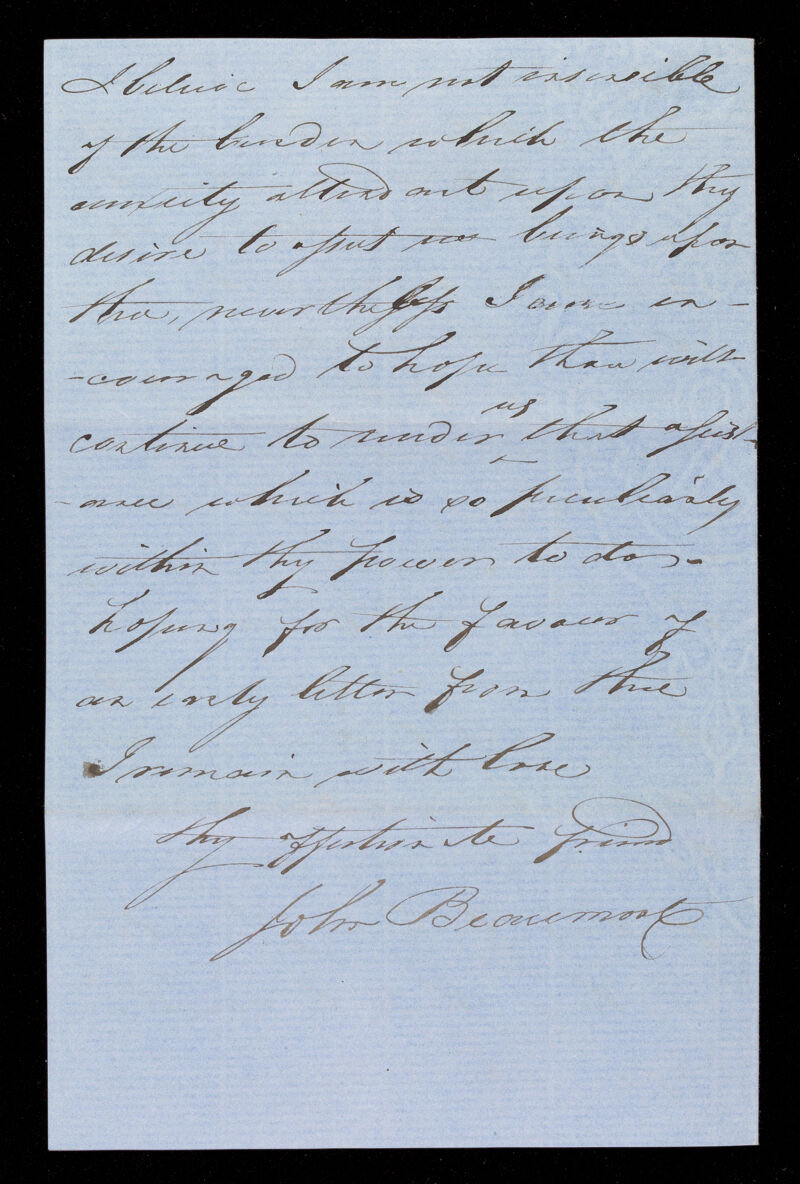 I believe I am not insensible
of the burden which the
anxiety attendant upon thy
desire to assist us brings upon
thee, nevertheless I am en-
-couraged to hope thou wilt
continue to render us that assist-
-ance which is so peculiarly
within thy power to do -
hoping for the favour of
an early letter from thee
I remain with love
thy affectionate friend
John Beaumont